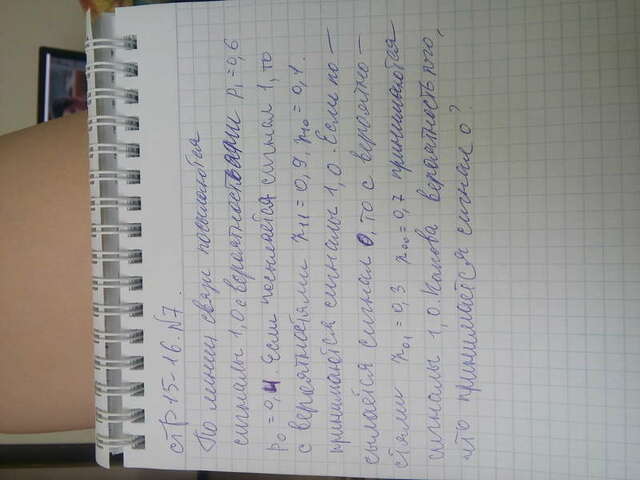 стр 15-16. №7.
По линии связи посылаются
сигналы 1,0 с вероятностями p₁=0,6
p₀=0,4. Если посылается сигнал 1, то
с вероятностями r₁₁=0,9, r₁₀=0,1.
принимаются сигналы 1,0. Если по-
сылается сигнал 0, то с вероятно-
стями r₀₁=0,3 r₀₀=0,7 принимаются
сигналы 1,0. Какова вероятность того,
что принимается сигнал 0?